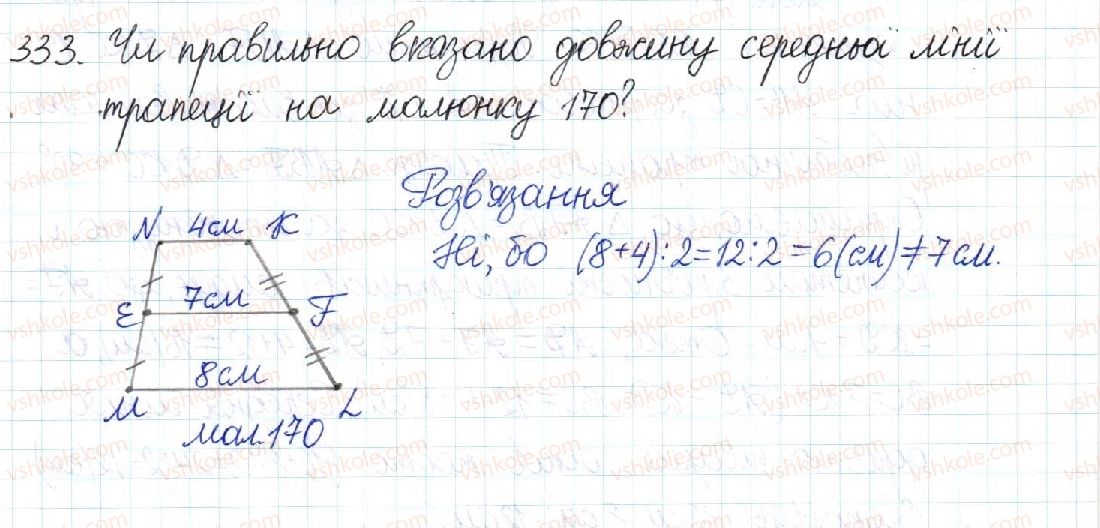 333. Чи правильно вказано довжину середньої лінії
трапеції на малюнку 170?
Розв'язання
Ні, бо (8+4):2=12:2=6(см)≠7см.
N 4см K
E 7см F
8см
M L
мал.170
vshkole.com